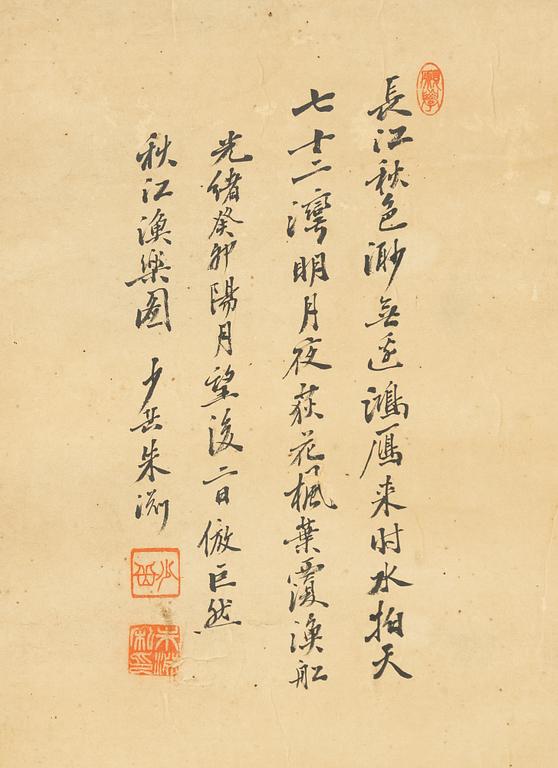 願學
長江秋色渺無邊鴻雁来时水拍天
七十二灣明月夜荻花楓葉覆漁船
光緒癸卯陽月望後二日倣巨然
秋江漁樂圖 少岳朱
少岳
私印